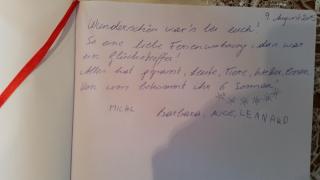 9. August
Wunderschön war's bei euch!
So eine liebe Ferienwohnung, das war
ein Glückstreffer!
Alles hat gepasst, Leute, Tiere, Wetter,
Von uns bekommt ihr 6 Sonnen!
MICHL Barbara, LEANARD